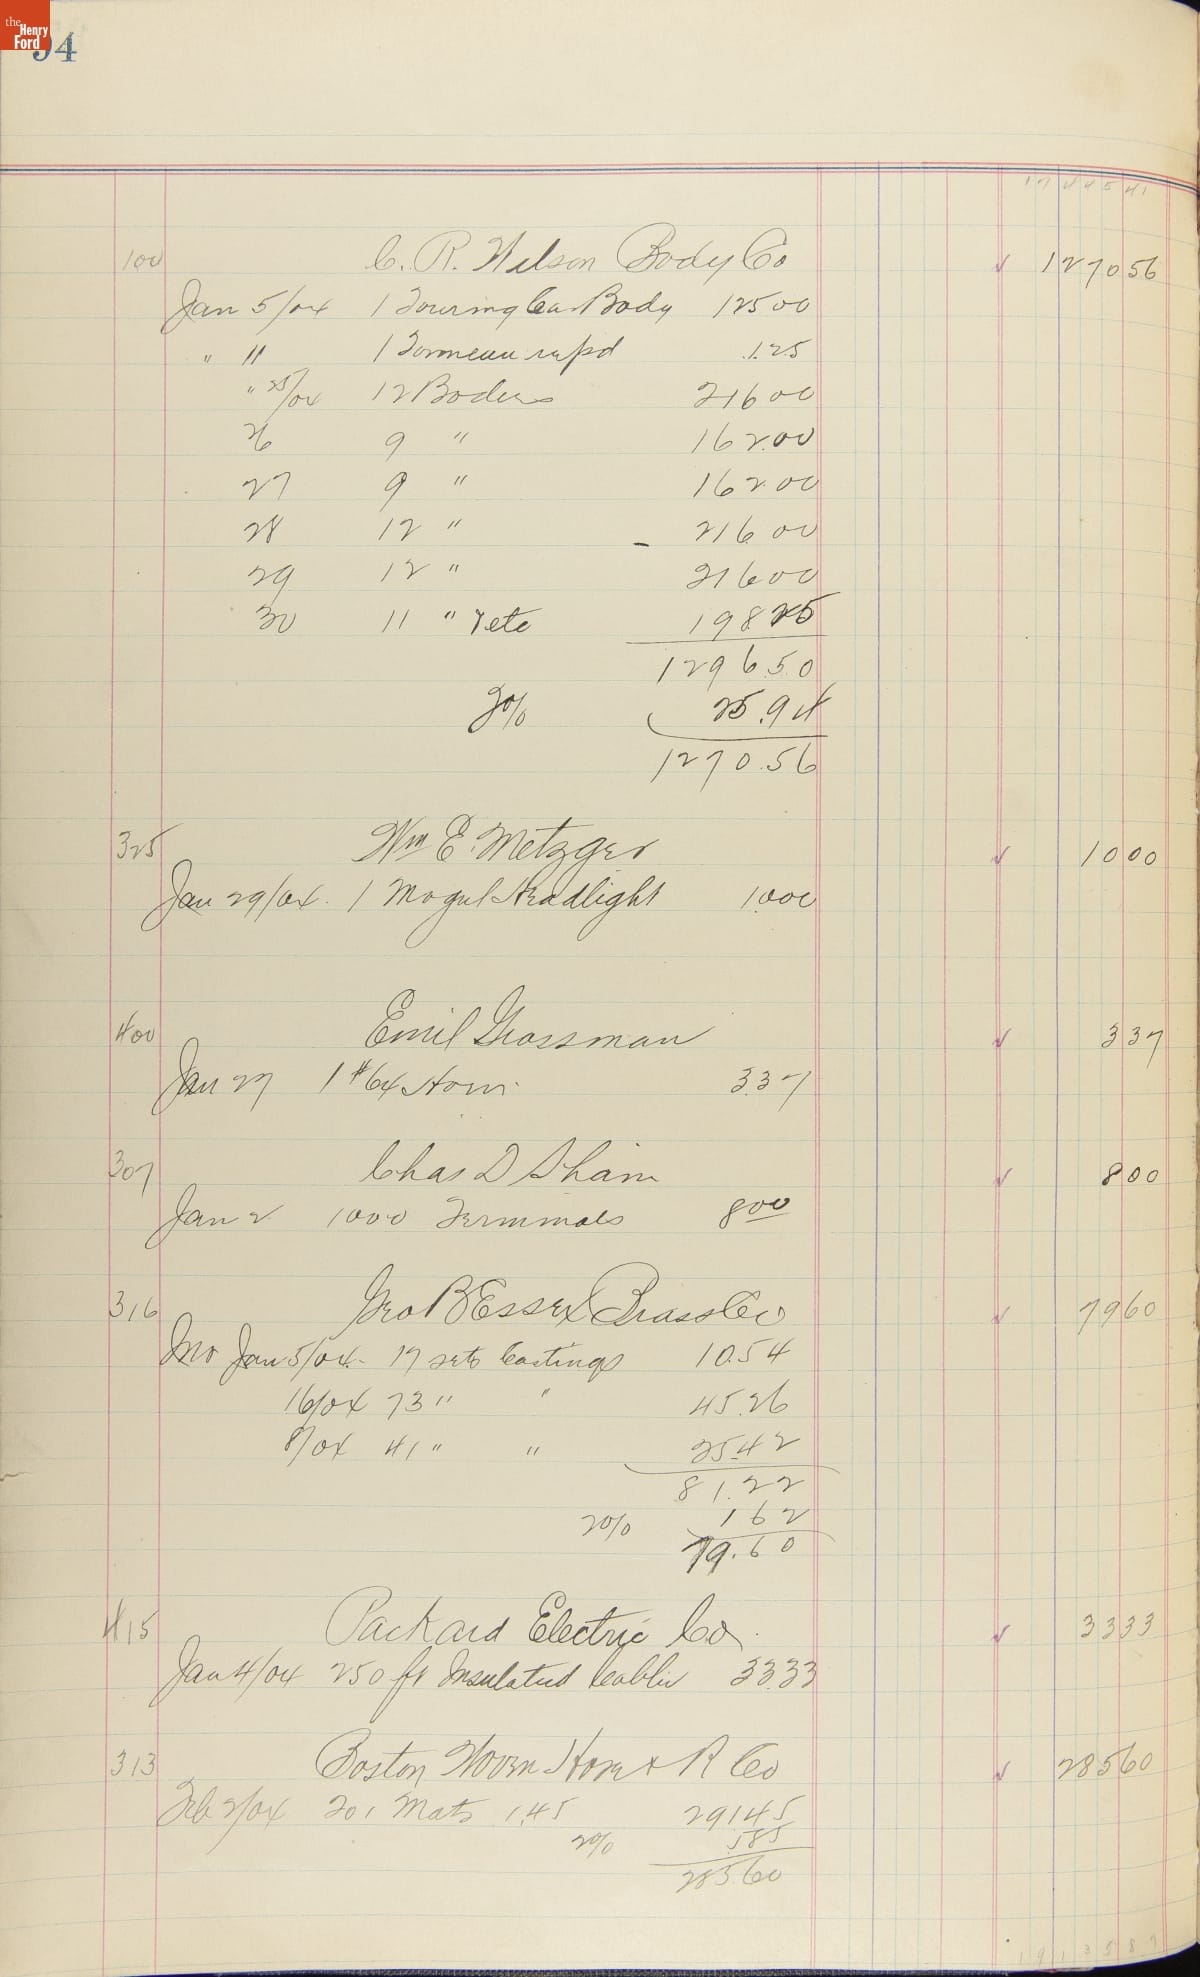 the Henry Ford
94
17 44 5 41
100 C. R. Wilson Body Co ✓ 1270 56
Jan 5/04 1 Touring Car Body 125 00
" 11 1 Tonneau repd 1.25
" 25/04 12 Bodies 216 00
26 9 " 162.00
27 9 " 162 00
28 12 " 216 00
29 12 " 216 00
30 11 " & etc 198 25
1296.50
2% 25.94
1270.56
325 Wm E. Metzger ✓ 10 00
Jan 29/04. 1 Mogul Headlight 10.00
400 Emil Grossman ✓ 3 37
Jan 27 1 #64 Horn 3.37
307 Chas D Sham ✓ 8 00
Jan 2 1000 Terminals 8 00
316 Geo B Essex Brass Co ✓ 79 60
Jan 5/04 - 17 sets Castings 10.54
16/04 73 " " 45.26
8/04 41 " " 25.42
81.22
2% 1 62
79.60
415 Packard Electric Co. ✓ 33 33
Jan 4/04 250 ft Insulated Cable 33.33
313 Boston Woven Hose & R Co ✓ 285 60
Feb 2/04 201 Mats 1.45 291.45
2% 5.85
285.60
19 1 3 5 8 7